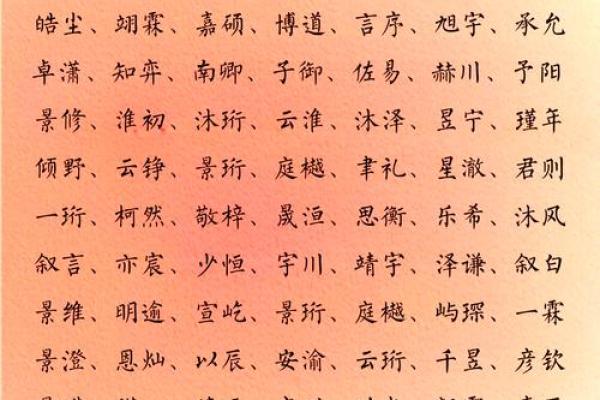 皓尘、翊霖、嘉硕、博道、言序、旭宇、承允
卓潇、知弈、南卿、子御、佐易、赫川、予阳
景修、淮初、沐珩、云淮、沐泽、昱宁、瑾年
倾野、云铮、景珩、庭樾、聿礼、星澈、君则
一珩、柯然、敬梓、晟洹、思衡、乐希、沐风
叙言、亦宸、少恒、宇川、靖宇、泽谦、叙白
景维、明逾、宣屹、景珩、庭樾、屿琛、一霖
景澄、恩灿、以辰、安渝、云珩、千昱、彦钦